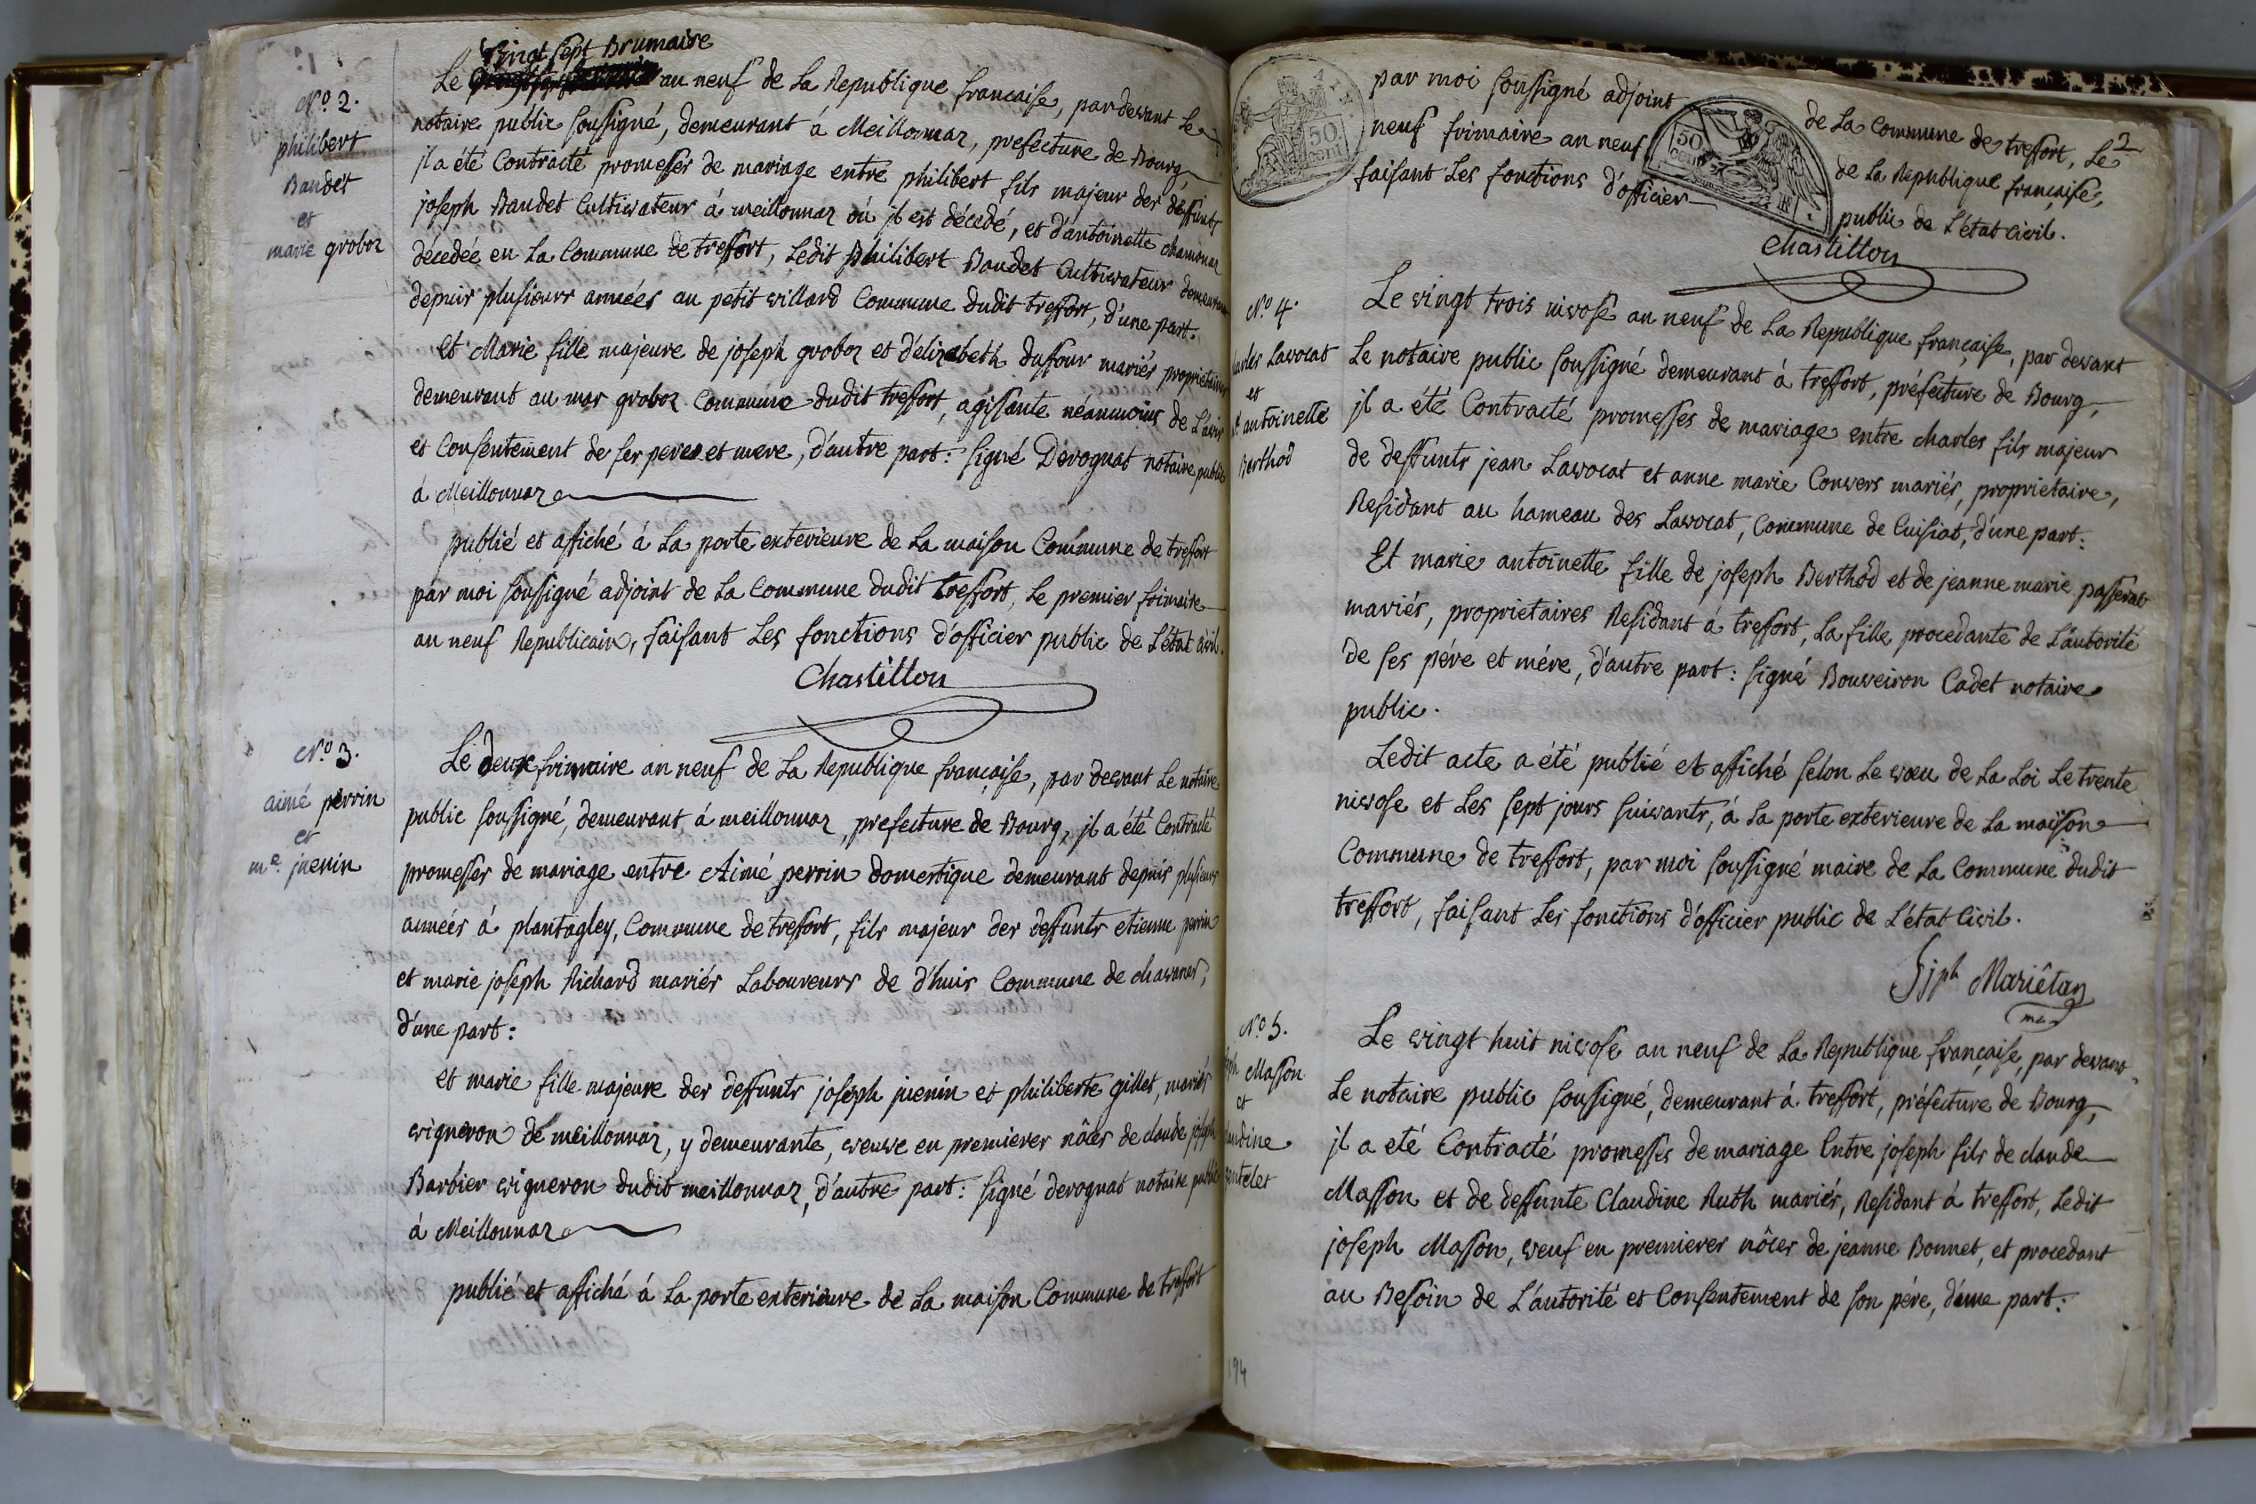 N.º 2.
philibert
Baudet
et
marie groboz
vingt sept Brumaire
Le an neuf de La Republique francaise, par devant Le
notaire public soussigné, demeurant á Meillonnaz, prefecture de Bourg
jl a été Contracté promesses de mariage entre philibert fils majeur des deffunts
joseph Baudet Cultivateur á meillonnaz oú jl est décedé, et d'antoinette chamonaz
décedée en La Commune de treffort, Ledit philibert Baudet Cultivateur demeurant
depuis plusieurs années au petit villard Commune dudit treffort, d'une part.
et Marie fille majeure de joseph groboz et d'elizabeth duffour mariés proprietaires
demeurant au mas groboz Commune dudit treffort, agissante néanmoins de L'avis
et Consentement de ses peres et mere, d'autre part: signé Derognat notaire public
á Meillonnaz
publié et affiché á La porte exterieure de La maison Commune de treffort
par moi soussigné adjoint de La Commune dudit treffort, Le premier frimaire
an neuf Republicain, faisant Les fonctions d'officier public de L'état civil.
Chastillon
N.º 3.
aimé perrin
et
m.e juenin
Le deux frimaire an neuf de La Republique française, par devant Le notaire
public soussigné, demeurant á meillonnaz, prefecture de Bourg, jl a été Contracté
promesses de mariage entre Aimé perrin domestique demeurant depuis plusieurs
années á plantagley, Commune de treffort, fils majeur des deffunts etienne perrin
et marie joseph Richard mariés Laboureurs de d'huis Commune de chavanes,
d'une part:
et marie fille majeure des deffunts joseph juenin et philiberte gillet, mariés
vigneron de meillonnaz, y demeurante, veuve en premieres nôces de claude joseph
Barbier vigneron dudit meillonnaz, d'autre part: signé derognat notaire public
á Meillonnaz
publié et affiché á La porte exterieure de La maison Commune de treffort
2
50 cent
50 cent
par moi soussigné adjoint de La Commune de treffort, Le
neuf frimaire an neuf de La Republique française,
faisant Les fonctions d'officier public de L'état Civil.
Chastillon
N.º 4.
Lavocat
et
antoinette
Berthod
Le vingt trois nivose an neuf de La Republique française, par devant
Le notaire public soussigné demeurant á treffort, préfecture de Bourg,
jl a été Contracté promesses de mariage entre charles fils majeur
de deffunts jean Lavocat et anne marie Convers mariés, proprietaire,
Residant au hameau des Lavocat, Commune de Cuisiat, d'une part:
Et marie antoinette fille de joseph Berthod et de jeanne marie passerat
mariés, proprietaires Residant á treffort, La fille, procedante de L'autorité
de ses pére et mére, d'autre part: signé Bouveiron Cadet notaire
public.
Ledit acte a été publié et affiché selon Le vœu de La Loi Le trente
nivose et Les sept jours suivants, á La porte exterieure de La maison
Commune de treffort, par moi soussigné maire de La Commune dudit
treffort, faisant Les fonctions d'officier public de L'état Civil.
Jph Mariêtan
N.º 5.
Masson
et
Le vingt huit nivose an neuf de La Republique française, par devant
Le notaire public soussigné, demeurant á treffort, préfecture de Bourg,
jl a eté Contracté promesses de mariage Entre joseph fils de claude
Masson et de deffunte Claudine Ruth mariés, Residant á treffort, Ledit
joseph Masson, veuf en premieres nôces de jeanne Bonnet, et procedant
au Besoin de L'autorité et Consentement de son pére, d'une part:
194